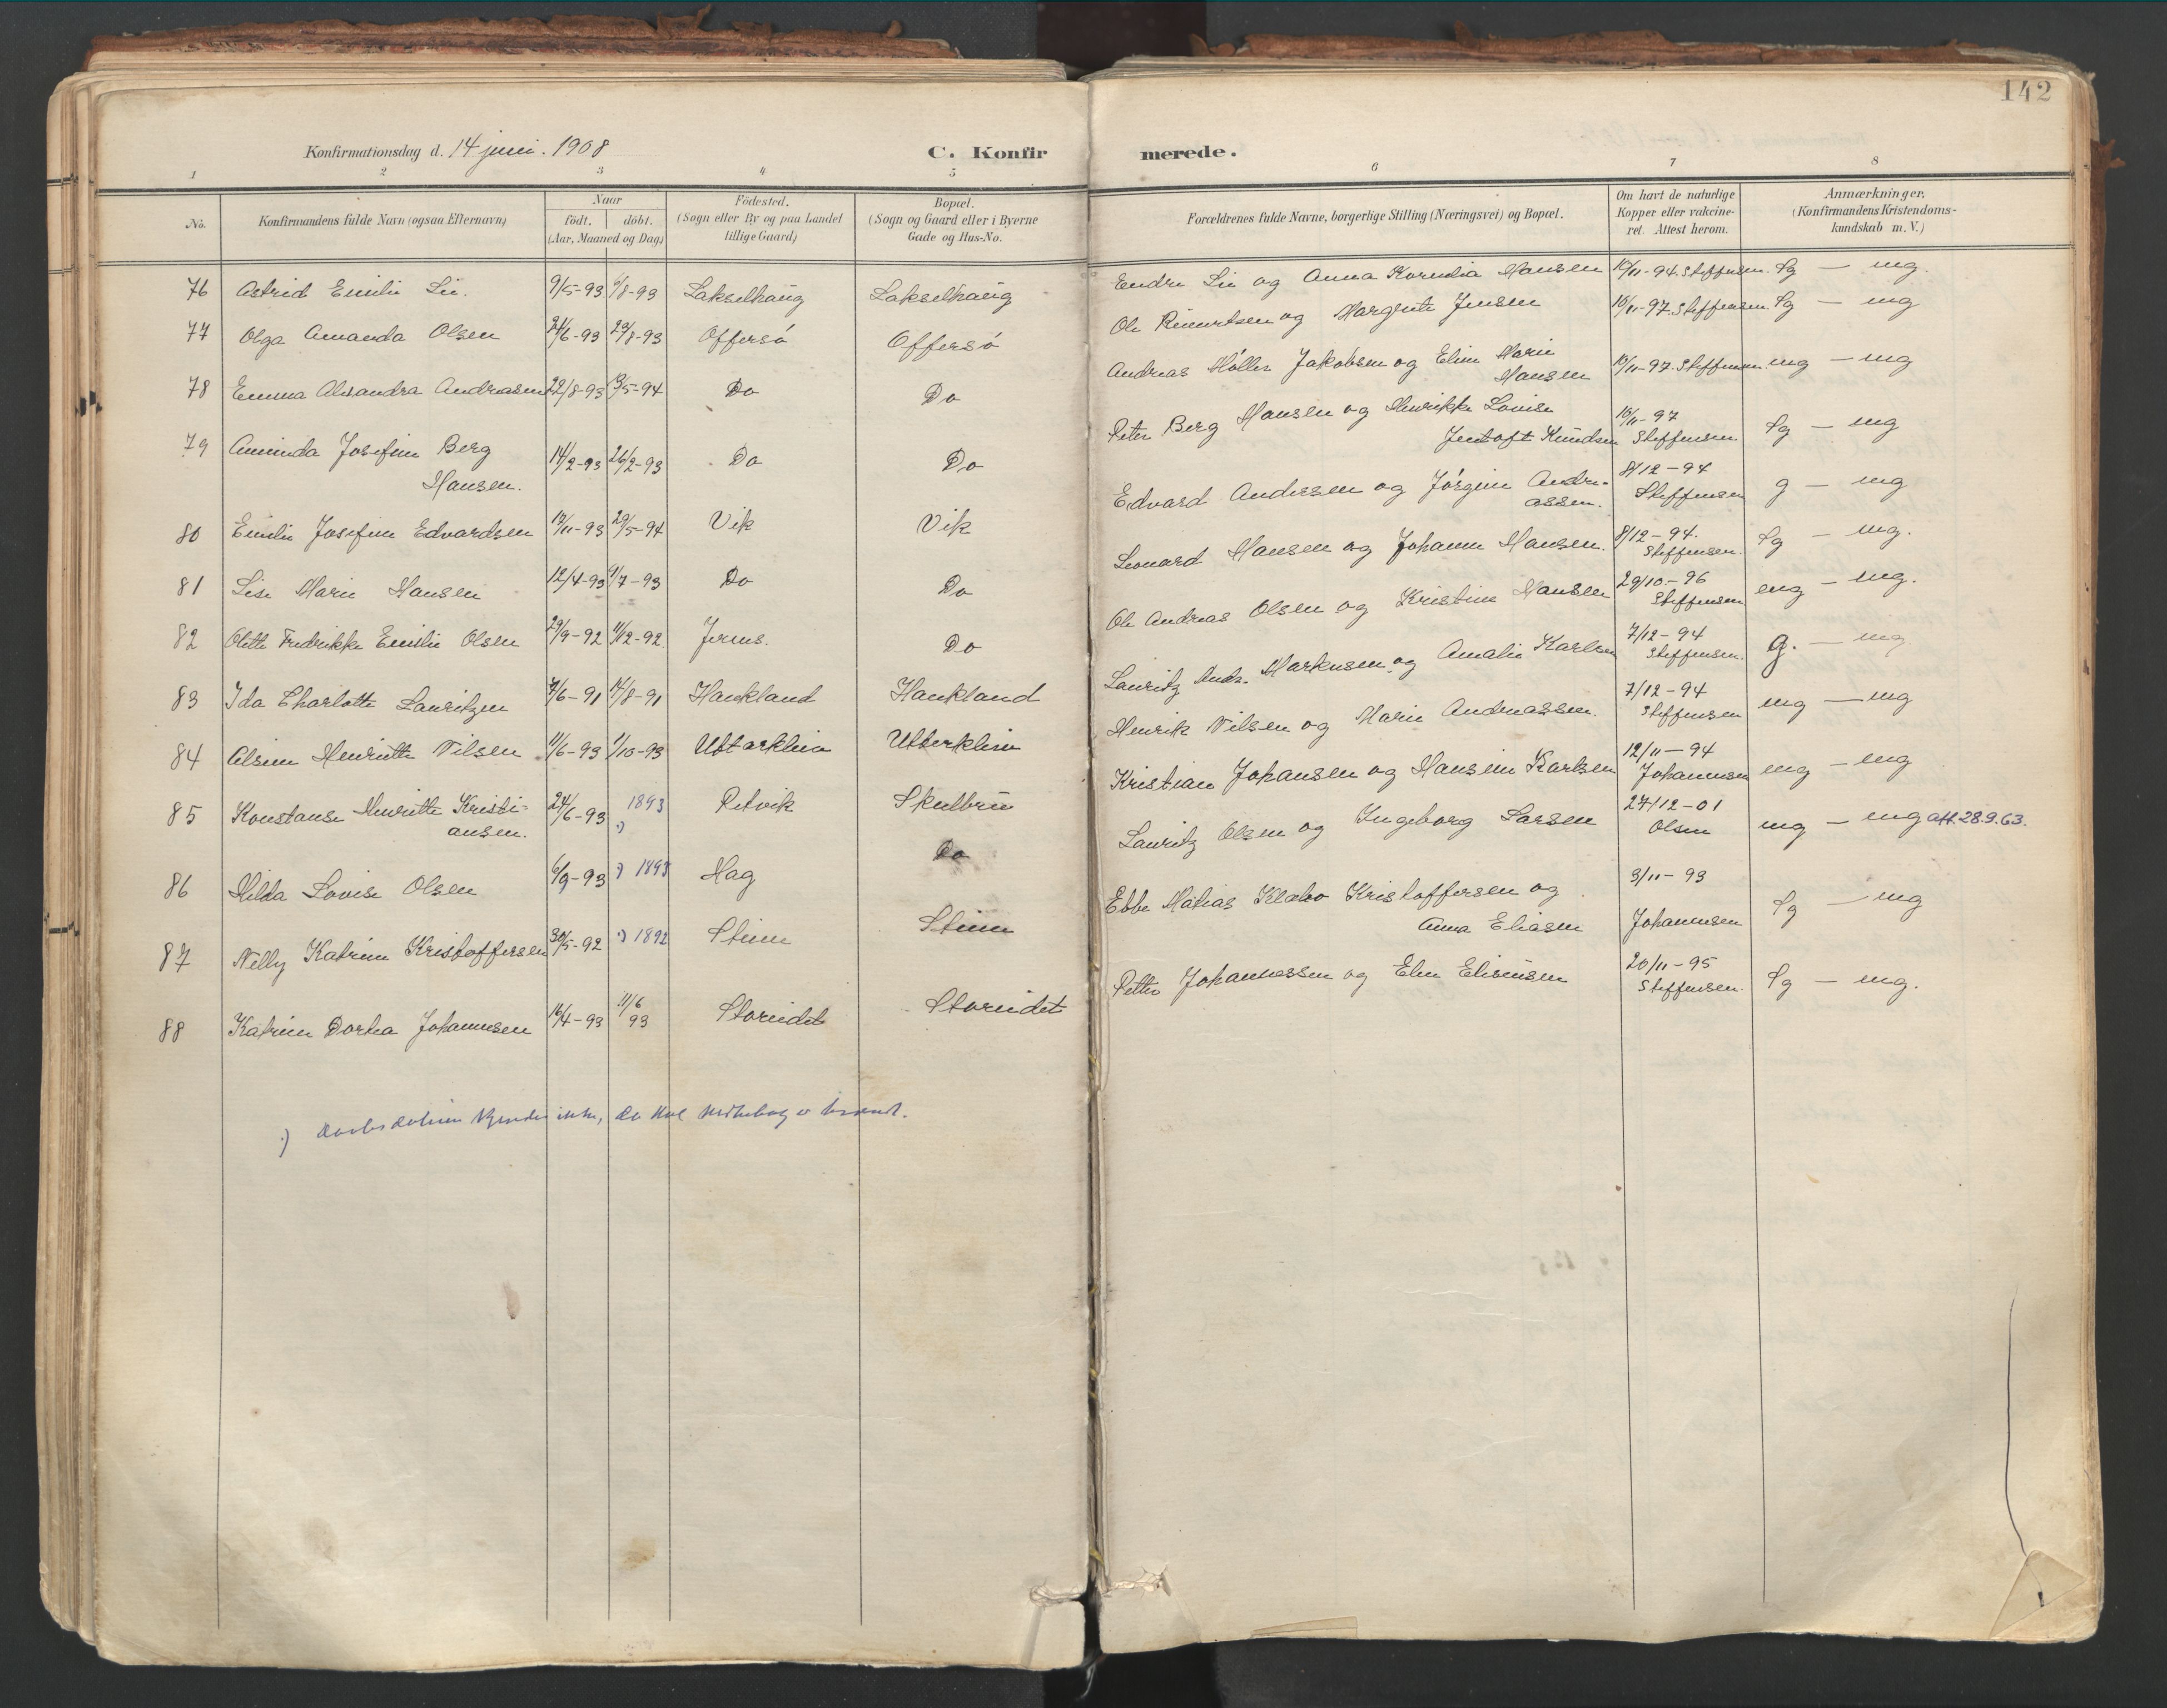 142
Konfirmationsdag d. 14 juni. 1908
C. Konfir
merede.
1 2 3 4 5 6 7 8
No.
Konfirmandens fulde Navn (ogsaa Efternavn)
Naar
födt. döbt.
(Aar, Maaned og Dag)
Födested.
(Sogn eller By og paa Landet
tillige Gaard)
Bopæl.
(Sogn og Gaard eller i Byerne
Gade og Hus-No.
Forældrenes fulde Navne, borgerlige Stilling (Næringsvei) og Bopæl.
Om havt de naturlige
Kopper eller vakcine-
ret. Attest herom.
Anmærkninger.
(Konfirmandens Kristendoms-
kundskab m. V.)
76 Astrid Emilie Lie. 9/5-93 /8-93 Lakselhaug Lakselhaug Endre Lie og Anna Kornelia Hansen 10/11-94. Steffensen. Sg — mg.
77 Olga Amanda Olsen 21/6-93 29/8-93 Offersö Offersö Ole Reinertsen og Margrete Jensen 10/11-97. Steffensen. Sg — mg
78 Emma Alexandra Andreasen 22/8-93 /5-94 Do Do Andreas Möller Jakobsen og Eline Marie
Hansen 10/11-97. Steffensen mg — mg
79 Aminda Josefine Berg
Hansen. 14/2-93 26/2-93 Do Do Peter Berg Hansen og Henrikke Lovise
Jentoft Knudsen 10/11-97
Steffensen Sg — mg
80 Emilie Josefine Edvardsen 19/11-93 29/5-94 Vik Vik Edvard Andersen og Jörgine Andre-
assen. 8/12-94
Steffensen g — mg
81 Lise Marie Hansen 12/4-93 9/7-93 Do Do Leonard Hansen og Johanne Hansen. 8/12-94.
Steffensen. Sg — mg.
82 Olette Fredrikke Emilie Olsen 29/9-92 11/12-92. Jerns. Do Ole Andreas Olsen og Kristine Hansen 29/10-96
Steffensen mg — mg.
83 Ida Charlotte Lauritzen 7/6-91 14/8-91 Haukland Haukland Lauritz Andr. Markusen og Amalie Karlsen 7/12-94
Steffensen. g. — mg
84 Alsine Henriette Nilsen 11/6-93 1/10-93 Utterkleiv Utterkleiv Henrik Nilsen og Marie Andreassen. 7/12-94
Steffensen mg — mg
85 Konstanse Henriette Kristi-
ansen. 24/6-93 1893 ·) Petvik Skulbru Kristian Johansen og Hansine Karlsen 12/11-94
Johannesen mg — mg
86 Hilda Lovise Olsen 6/9-93 ·) 1893 Hag Do Lauritz Olsen og Ingeborg Larsen 27/12-01
Olsen mg — mg att. 28.9.63.
87 Nelly Katrine Kristoffersen 30/5-92 ·) 1892 Steine Steine Ebbe Matias Klæbo Kristoffersen og
Anna Eliasen 3/11-93
Johannesen Sg — mg
88 Katrine Dortea Johannesen 16/4-93 11/6
93 Storeidet Storeidet Petter Johannessen og Elen Eliseusen 20/11-95
Steffensen. Sg — mg.
·) Daabsdatoen kjendes ikke, da Hol kirkebog er brændt.